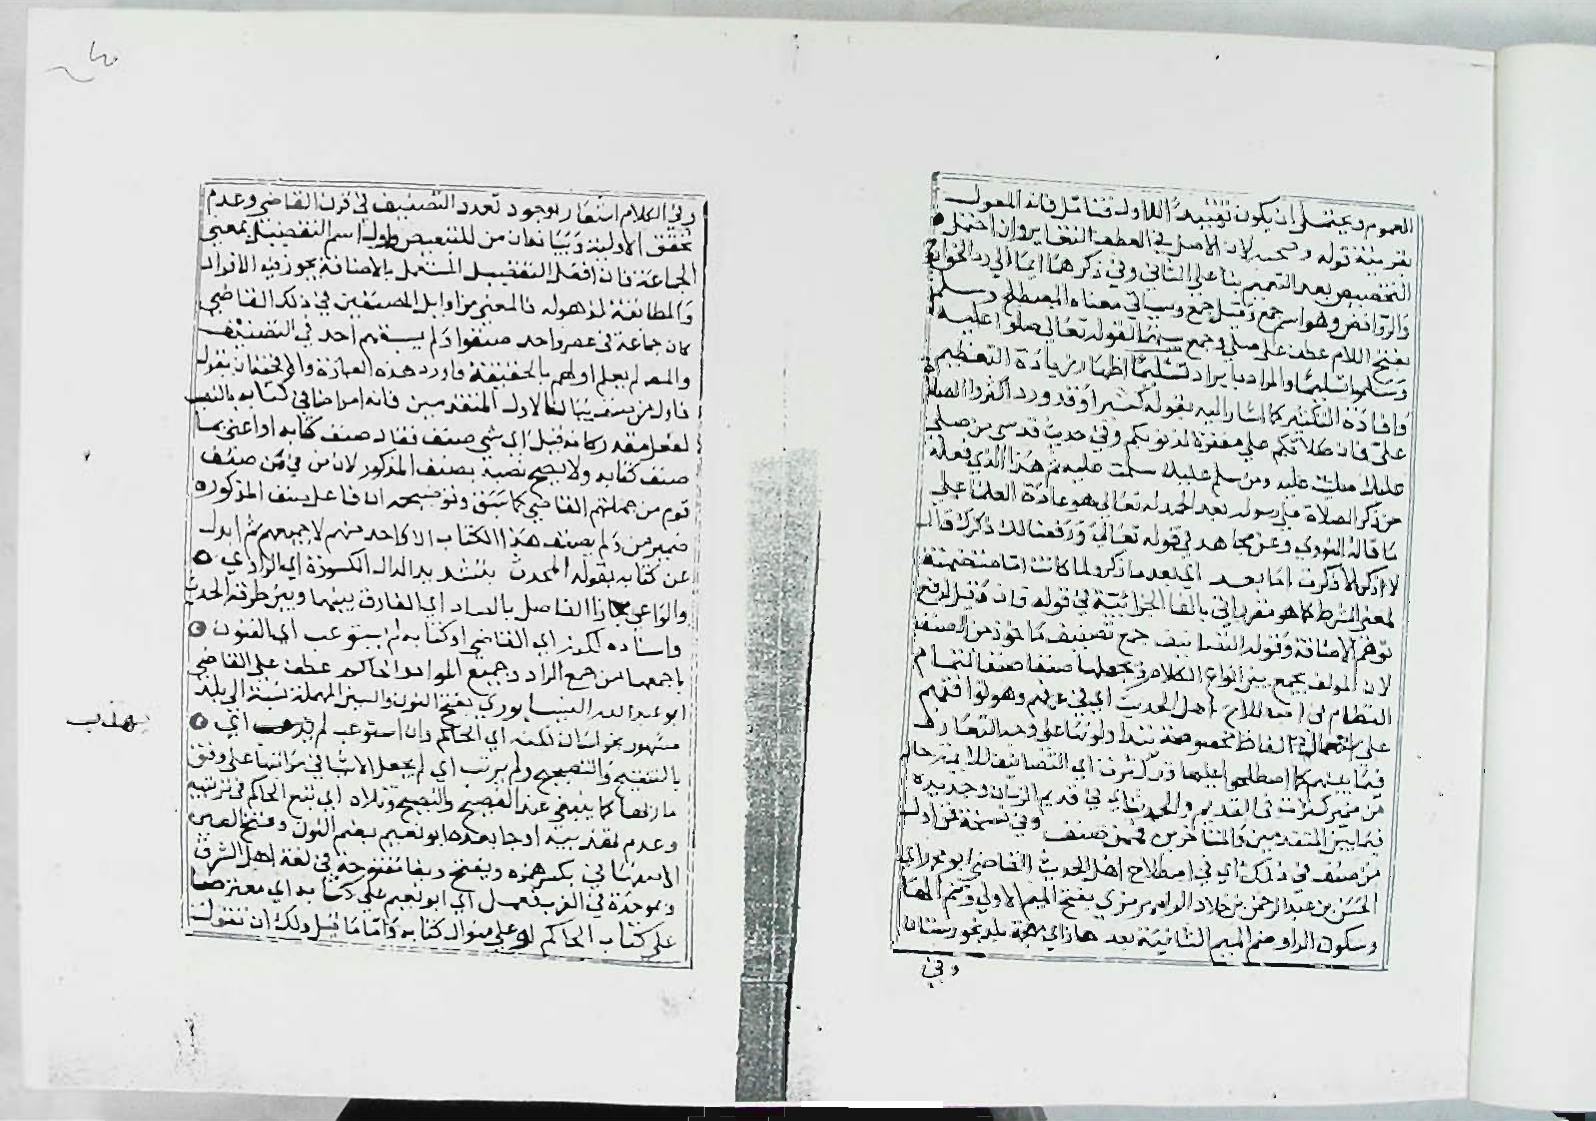 العموم ويحتمل ان يكون تقييدا للاول فتامل فانه المعول
بقرينة قوله وصحبه لان الاصل في العطف التغاير وان احتمل
التخصيص بعد التعميم بناء علي الثاني وفي ذكرهما ايما الي رد الخوارج
والروافض وهو اسم جمع وقيل جمع وسياتي معناه المصطلح وسلم
بفتح اللام عطف علي صلي وجمع بينهما لقوله تعالي صلوا عليه
وسلموا تسليما والمراد بايراد تسليما اظهار زيادة التعظيم
وافادة التكثير كما اشار اليه بقوله كثيرا وقد ورد اكثروا الصلاة
علي فان صلاتكم علي مغفرة لذنوبكم وفي حديث قدسي من صلي
عليك صليت عليه ومن سلم عليك سلمت عليه ثم هذا الذي فعله
من ذكر الصلاة علي رسوله بعد الحمد لله تعالي هو عادة العلما علي
ما قاله النووي وعن مجاهد في قوله تعالي ورفعنا لك ذكرك قال
لا اذكر الا ذكرت اما بعد اي بعد ما ذكر ولما كانت اما متضمنة
لمعني الشرط كما هو مقرر اتي بالفا الجزائية في قوله فان قيل لدفع
توهم الاضافة وقوله التصانيف جمع تصنيف ماخوذ من الصنف
لان المولف يجمع بين انواع الكلام ويجعلها صنفا صنفا لتمام
النظام في اصطلاح اهل الحديث اي في عرفهم وهو توافقهم
علي استعمال الفاظ مخصوصة
فيما بينهم كما اصطلحوا عليها قد كثرت اي التصانيف للايمة حال
من ضمير كثرت في القديم والحديث اي في قديم الزمان وجديده
فيما بين المتقدمين والمتاخرين فممن صنف وفي نسخة فمن اول
من صنف في ذلك اي في اصطلاح اهل الحديث القاضي ابو محمد اي
الحسن بن عبد الرحمن بن خلاد الرامهرمزي بفتح الميم الاولي وضم الها
وسكون الرا وضم الميم الثانية بعدها زاي بلد بخوزستان
وفي
وفي الكلام اشعار بوجود تعدد التصنيف في قرن القاضي وعدم
تحقق الاولية وبيانه ان من للتبعيض واول اسم التفضيل بمعني
الجماعة فان افعل التفضيل المستعمل بالاضافة يجوز فيه الافراد
والمطابقة لمن هو له فالمعني من اوايل المصنفين في ذلك القاضي
كان جماعة في عصر واحد صنفوا ولم يسبقهم احد في التصنيف
والمص لم يعلم اولهم بالحقيقة فاورد هذه العبارة
لفعل مقدر كانه قيل اي شي صنف فقال صنف كتابه او اعني بما
صنف كتابه ولا يصح نصبه بصنف المذكور لان من في من صنف
قوم من جملتهم القاضي كما سبق وتوضيحه ان فاعل صنف المذكورة
ضمير من ولم يصنف هذا الكتاب الا واحد منهم لا جميعهم ثم ابدل
عن كتابه بقوله المحدث بتشديد الدال المكسورة اي الراوي
والواعي مجازا الفاصل بالصاد اي الفارق بينهما وبين طرفة الحديث
واسناده لكنه اي القاضي او كتابه لم يستوعب اي الفنون
باجمعها من جمع المراد وجميع المواد والحاكم عطف علي القاضي
ابو عبد الله النيسابوري بفتح النون والسين المهملة نسبة الي بلد
مشهور بخراسان لكنه اي الحاكم وان استوعب لم يهذب اي
بالتنقيح والتصحيح ولم يرتب اي لم يجعل الاشيا في مراتبها علي وفق
ما رامها كما ينبغي عند الفصيح والنصيح وتلاه اي تبع الحاكم في ترتيبه
وعدم تهذيبه او جا بعده ابو نعيم بضم النون وفتح العين
الاصبهاني بكسر همزة ويفتح وبفا مفتوحة في لغة اهل الشرق
وبموحدة في الغرب فعمل اي ابو نعيم علي كتابه اي معترضا
علي كتاب الحاكم او علي منوال كتابه واما ما قيل ولك ان تقول
يهذب